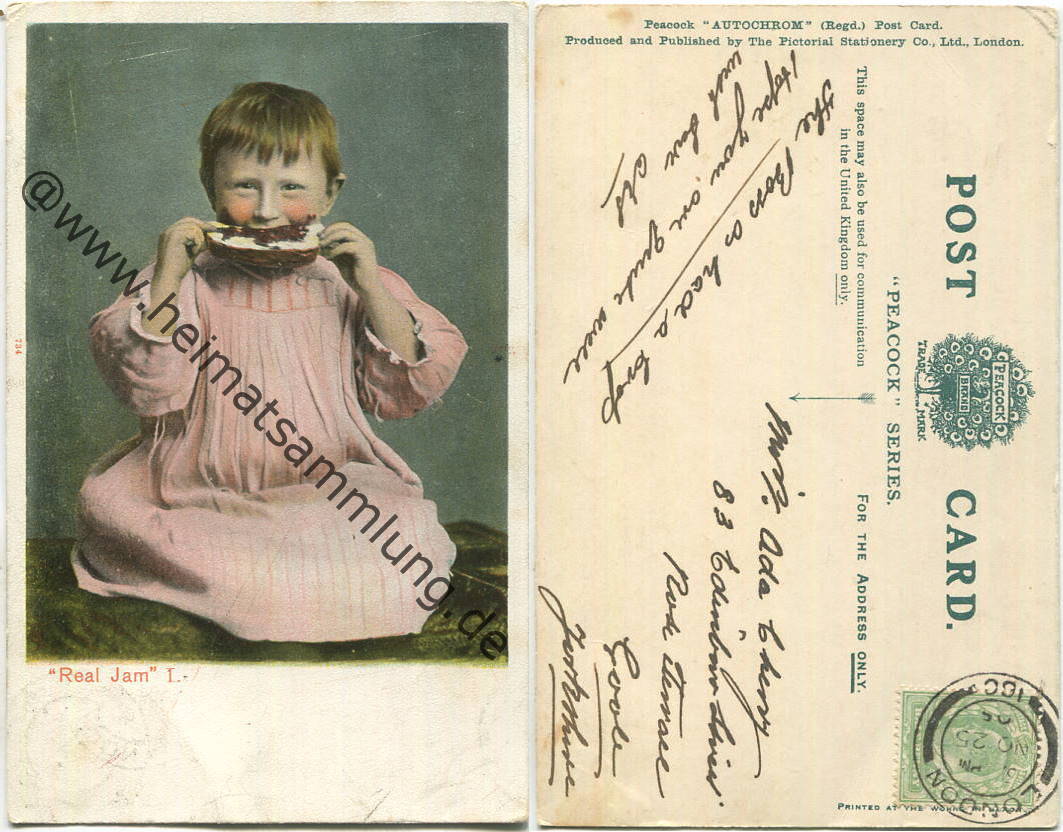 734
"Real Jam" I.-
@www.heimatsammlung.de
Peacock "AUTOCHROM" (Regd.) Post Card.
Produced and Published by The Pictorial Stationery Co., Ltd., London.
POST CARD.
PEACOCK
BRAND
TRADE MARK
"PEACOCK" SERIES.
This space may also be used for communication
in the United Kingdom only.
FOR THE ADDRESS ONLY.
The Boss as had a
Hope you are quite well
with love
Miss. Ada Cherry
83 Edinboro
Terrace
Goole
Yorkshire
NO 25
05
PM
PRINTED AT THE WORKS IN